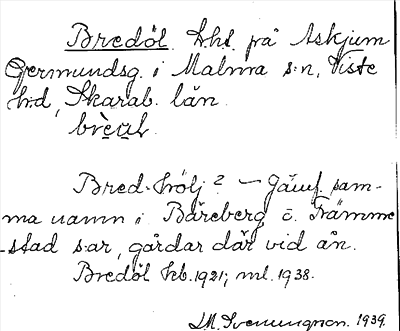 Bredöl. Lht. på Askjum
Germundsg. i Malma s:n, Viste
h:d, Skarab. län.
Bred-hölj? — Jämf. sam-
ma namn i Bäreberg o. Främme-
stad s:ar, gårdar där vid ån.
Bredöl kb. 1921; ml. 1938.
1939.